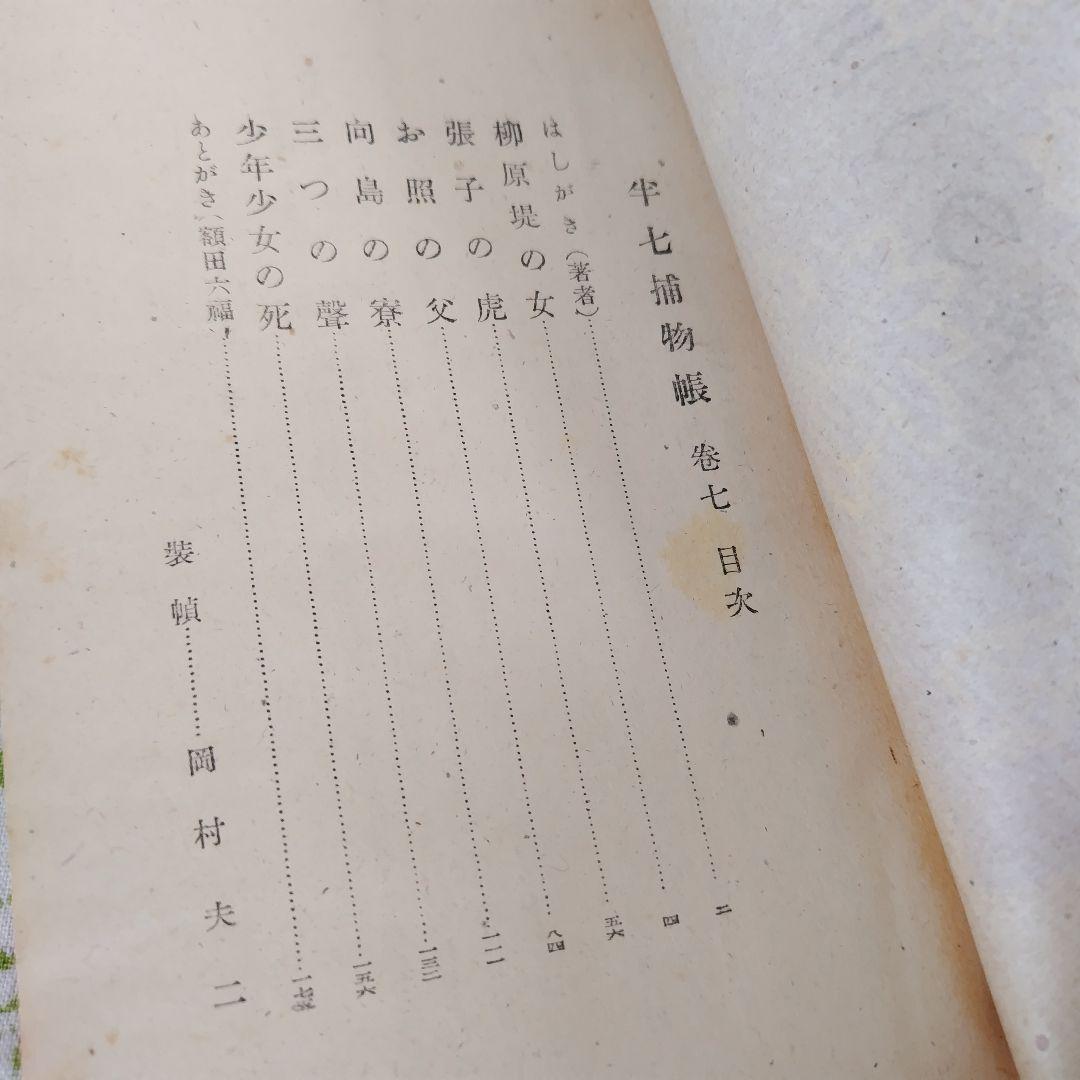 半七捕物帳 卷七 目次
はしがき（著者）……二
柳原堤の女……四
張子の虎……五六
お照の父……八四
向島の寮……一一一
三つの聲……一三二
少年少女の死……一五六
あとがき（額田六福）……
裝幀……岡村夫二